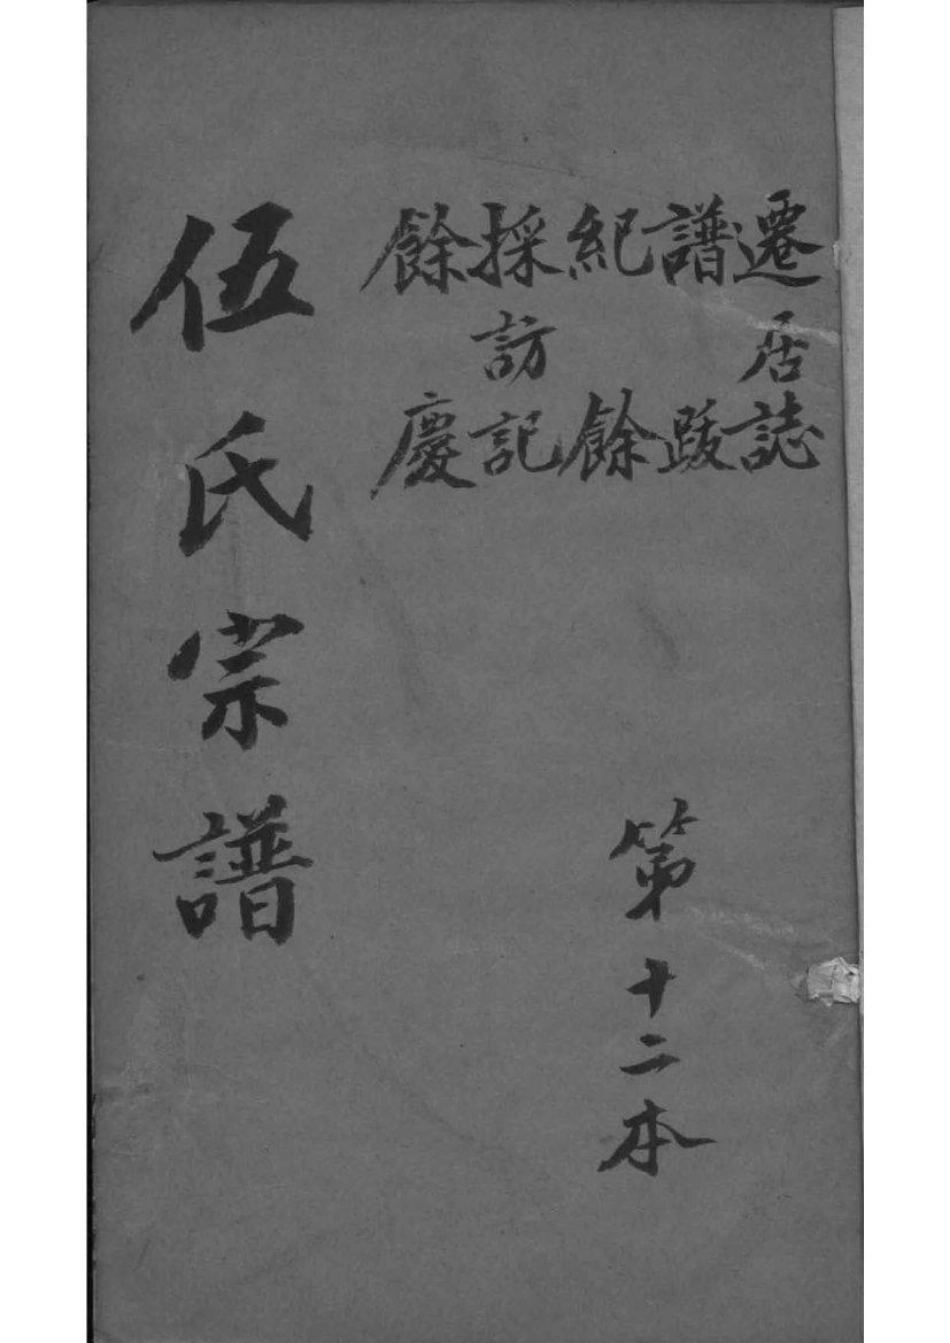 遷居誌
譜跋
紀餘
採訪記
餘慶
第十二本
伍氏宗譜